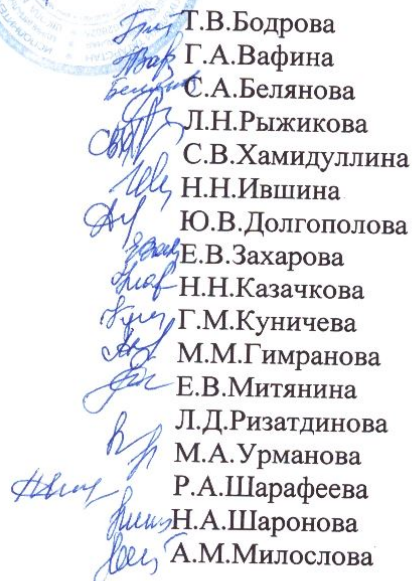 Т.В.Бодрова
Г.А.Вафина
С.А.Белянова
Л.Н.Рыжикова
С.В.Хамидуллина
Н.Н.Ившина
Ю.В.Долгополова
Е.В.Захарова
Н.Н.Казачкова
Г.М.Куничева
М.М.Гимранова
Е.В.Митянина
Л.Д.Ризатдинова
М.А.Урманова
Р.А.Шарафеева
Н.А.Шаронова
А.М.Милослова